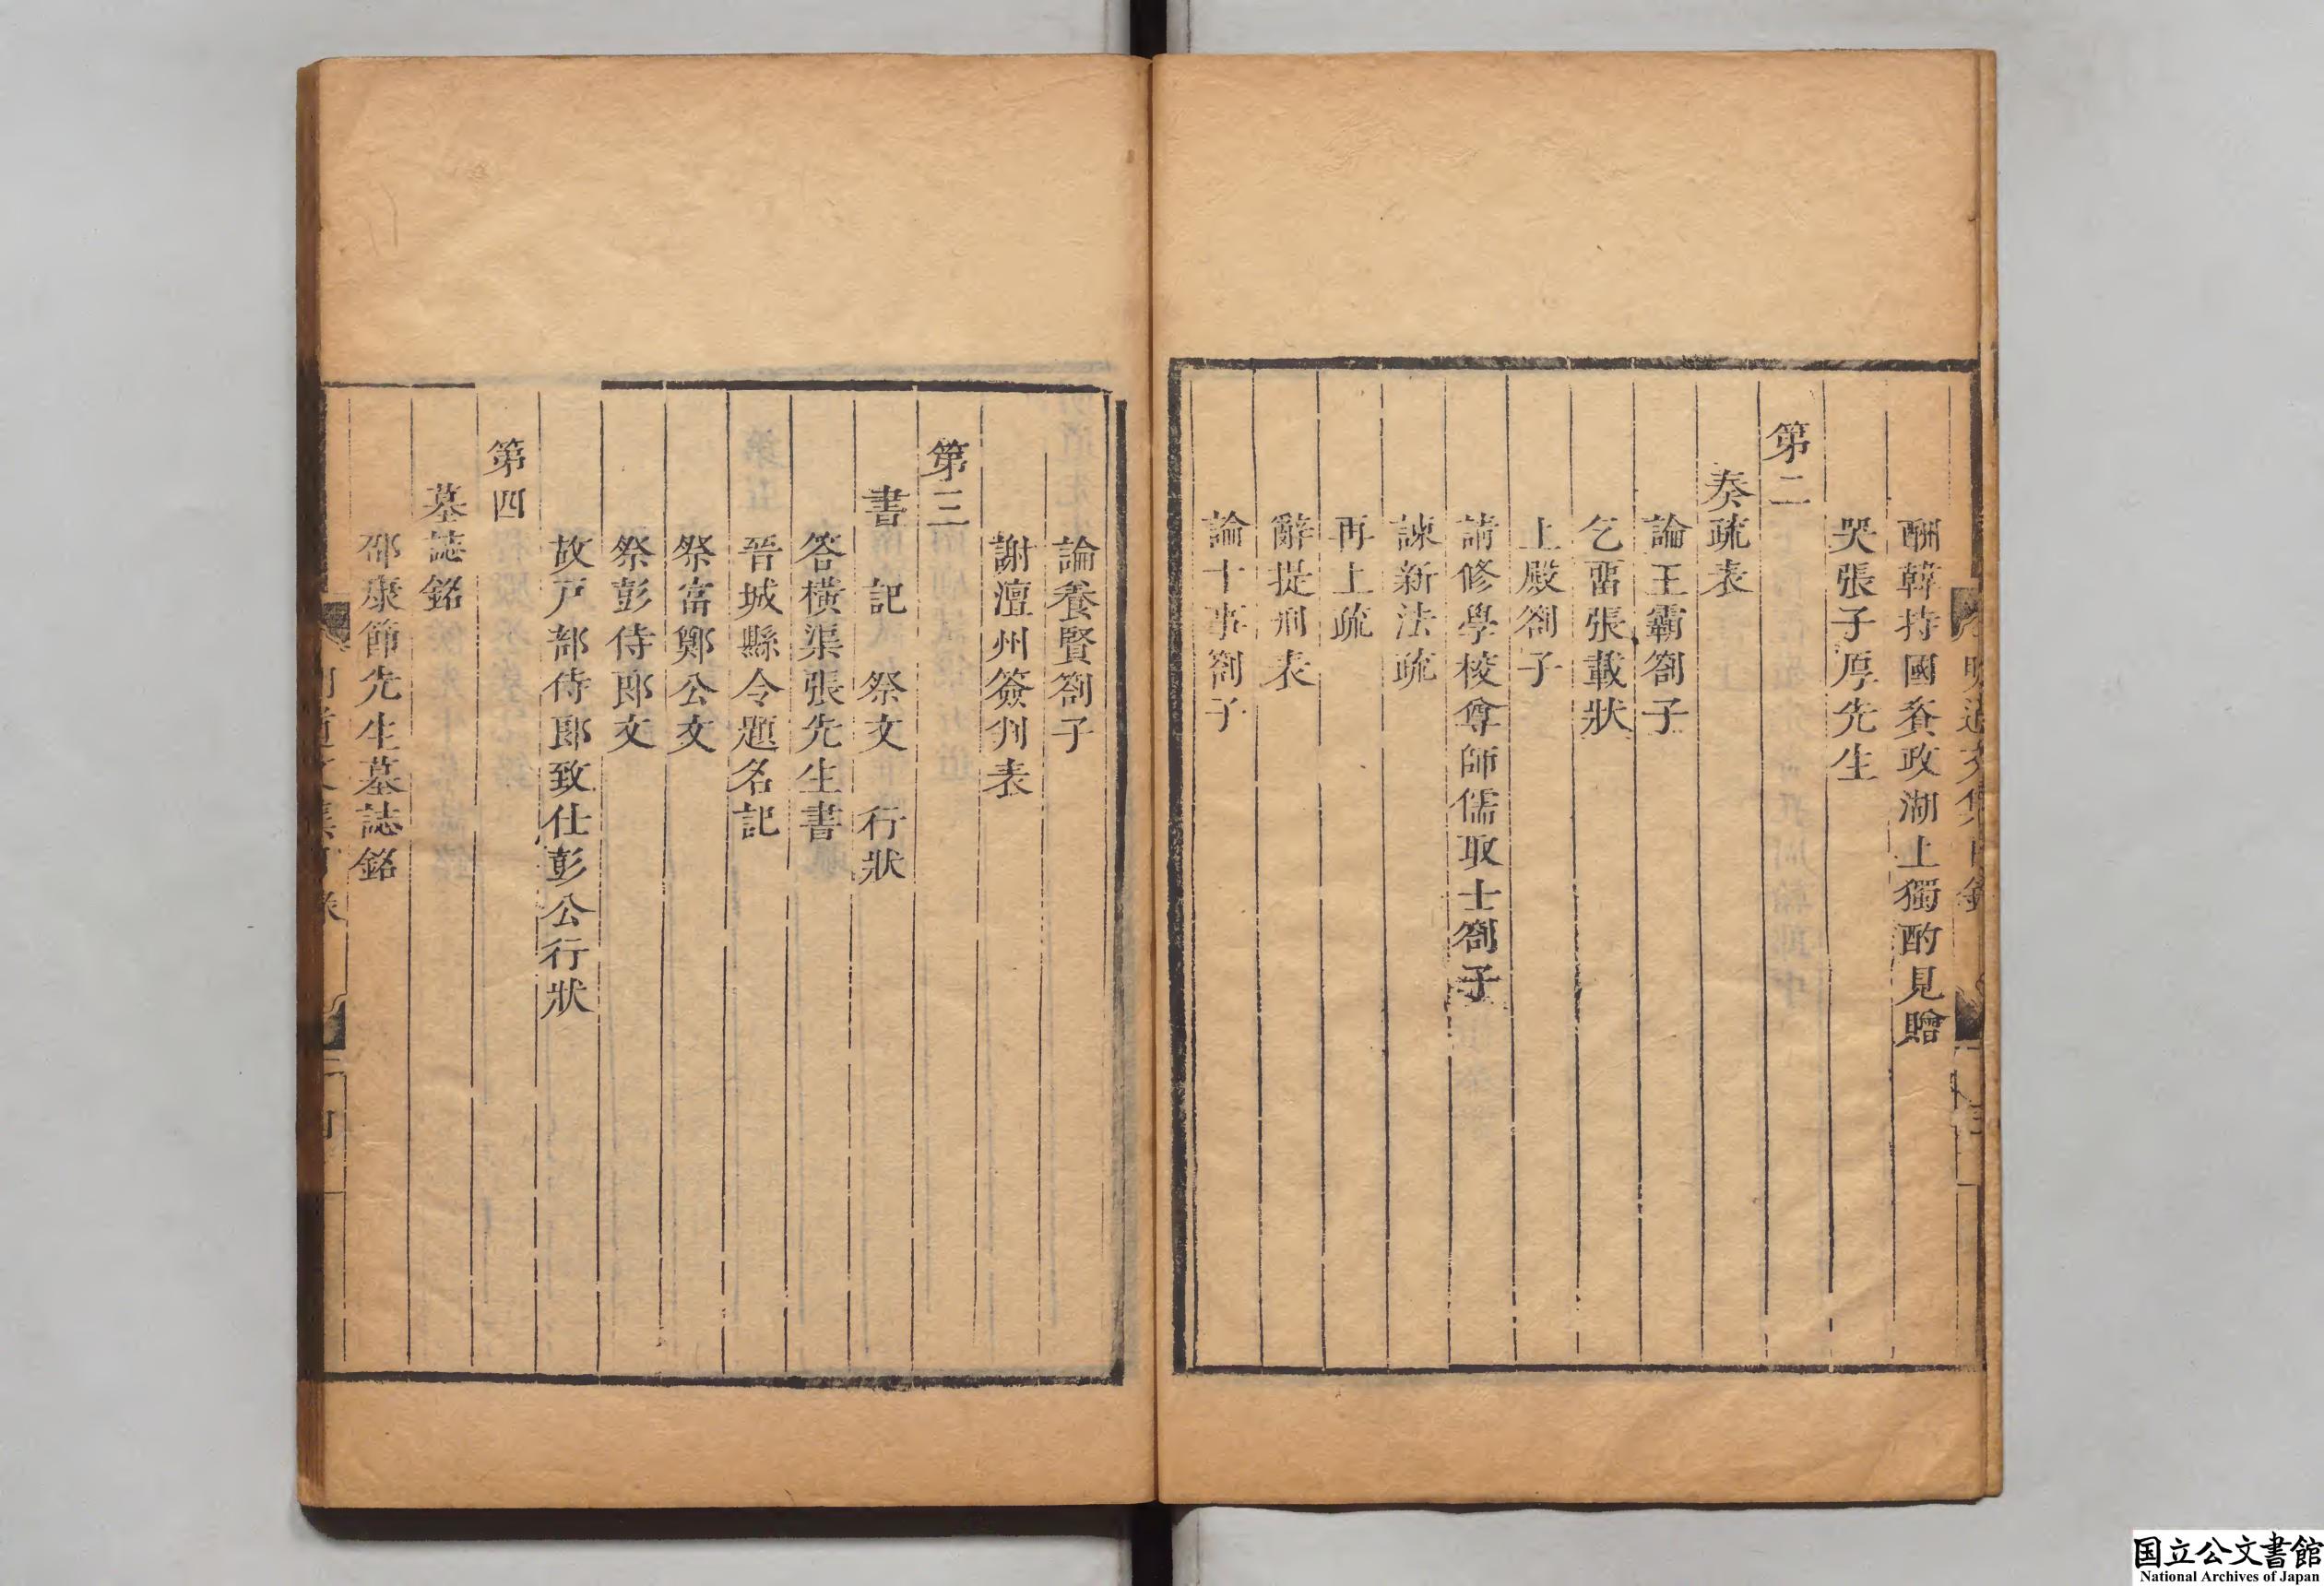 酬韓持國資政湖上獨酌見贈
哭張子厚先生
第二
奏疏表
論王霸劄子
乞畱張載狀
上殿劄子
請修學校尊師儒取士劄子
諫新法疏
再上疏
辭提刑表
論十事劄子
論養賢劄子
謝澶州簽判表
第三
書　記　祭文　行狀
答橫渠張先生書
晉城縣令題名記
祭富鄭公文
祭彭侍郎文
故戸部侍郎致仕彭公行狀
第四
墓誌銘
邵康節先生墓誌銘
国立公文書館
National Archives of Japan